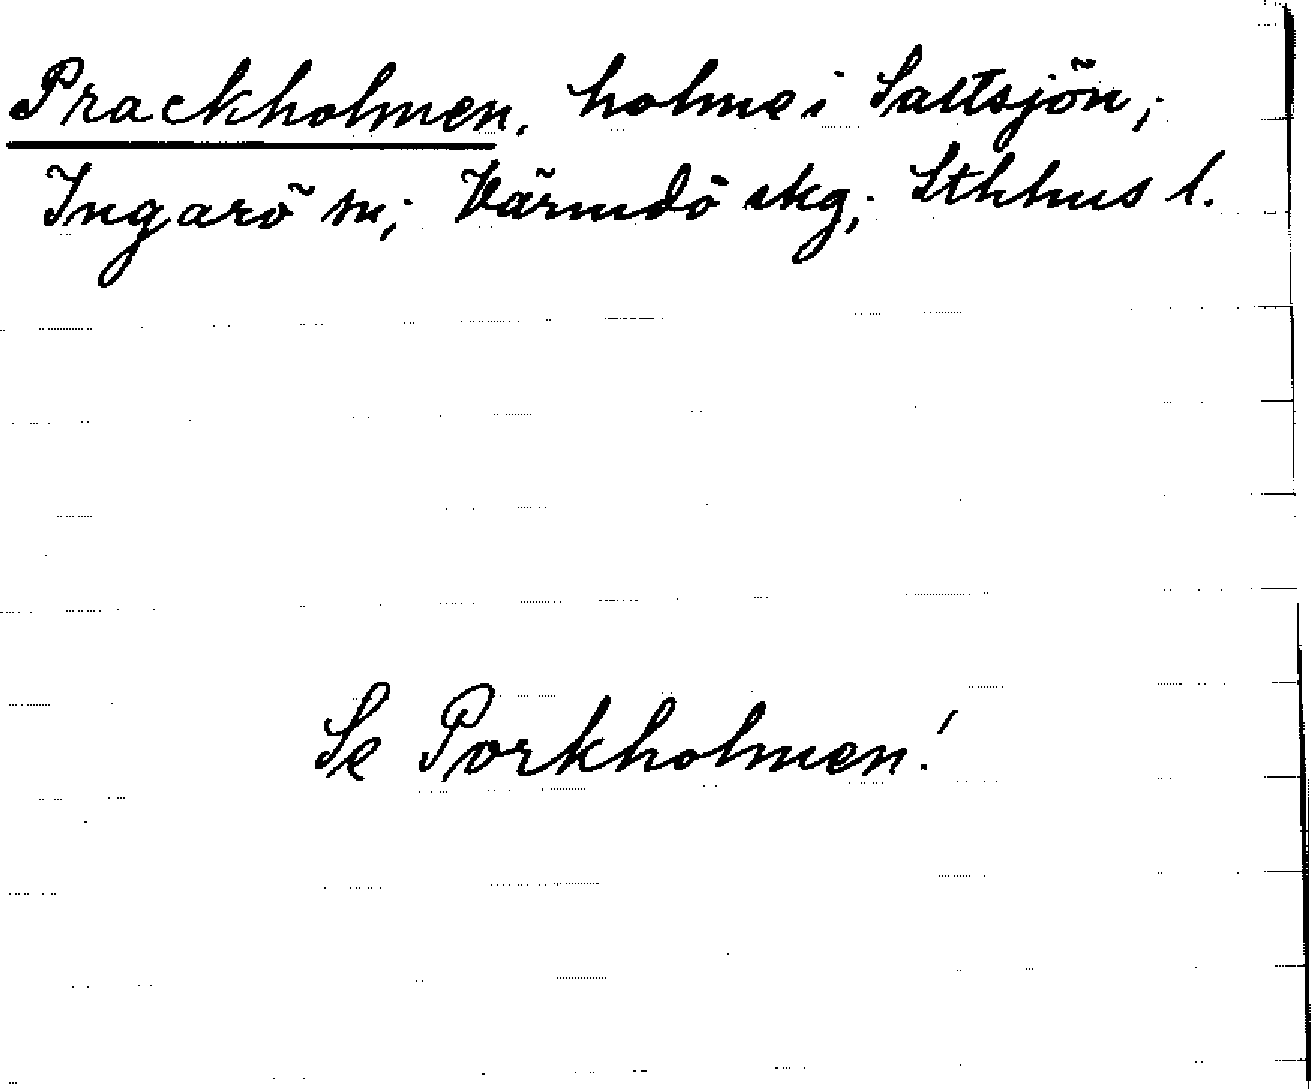 Prackholmen, holme i Saltsjön;
Ingarö sn; Värmdö skg; Sthlms l.
Se Porkholmen!